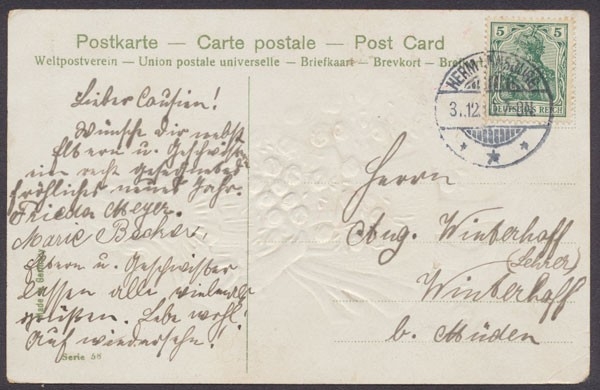 Postkarte — Carte postale — Post Card
Weltpostverein — Union postale universelle — Briefkaart — Brevkort —
5 5
DEUTSCHES REICH
3.12
Lieber Cousien!
Wünsche dir nebst
Eltern u. Geschwister
ein recht gesegnetes
fröhliches neues Jahr.
Frieda Meyer.
Marie Becker,
Eltern u. Geschwister
lassen alle vielmals
grüßen. Lebe wohl!
Auf wiedersehn!
Serie 68
Herrn
Aug. Winterhoff
(Lehrer)
Winterhoff
b. Müden